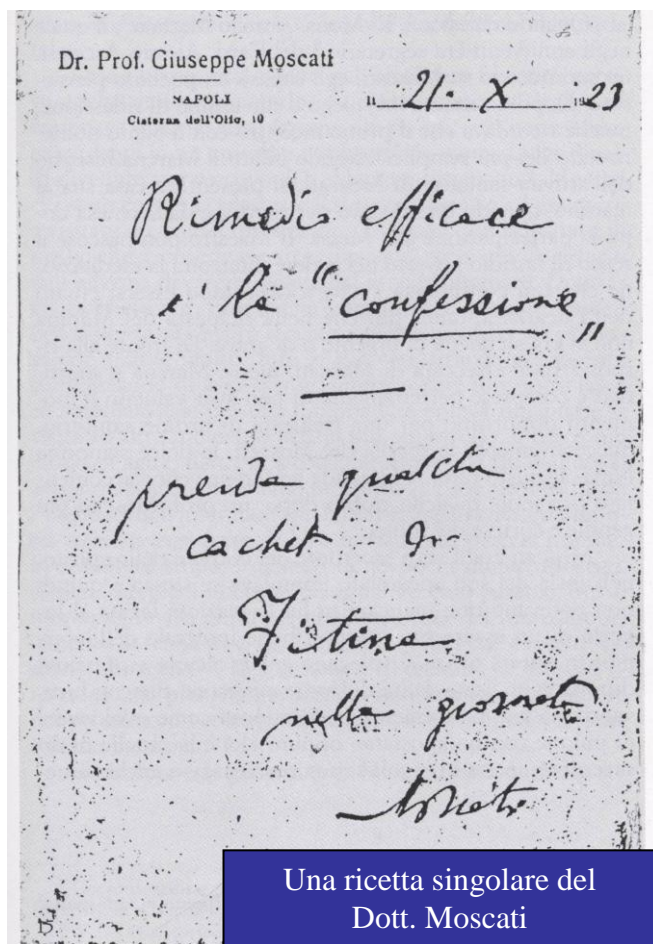 Dr. Prof. Giuseppe Moscati
NAPOLI
Cisterna dell'Olio, 10
li 21. X 1923
Rimedio efficace
e' la "confessione"
prenda qualche
cachet di
Fitina
nella giornata
Moscati
Una ricetta singolare del
Dott. Moscati